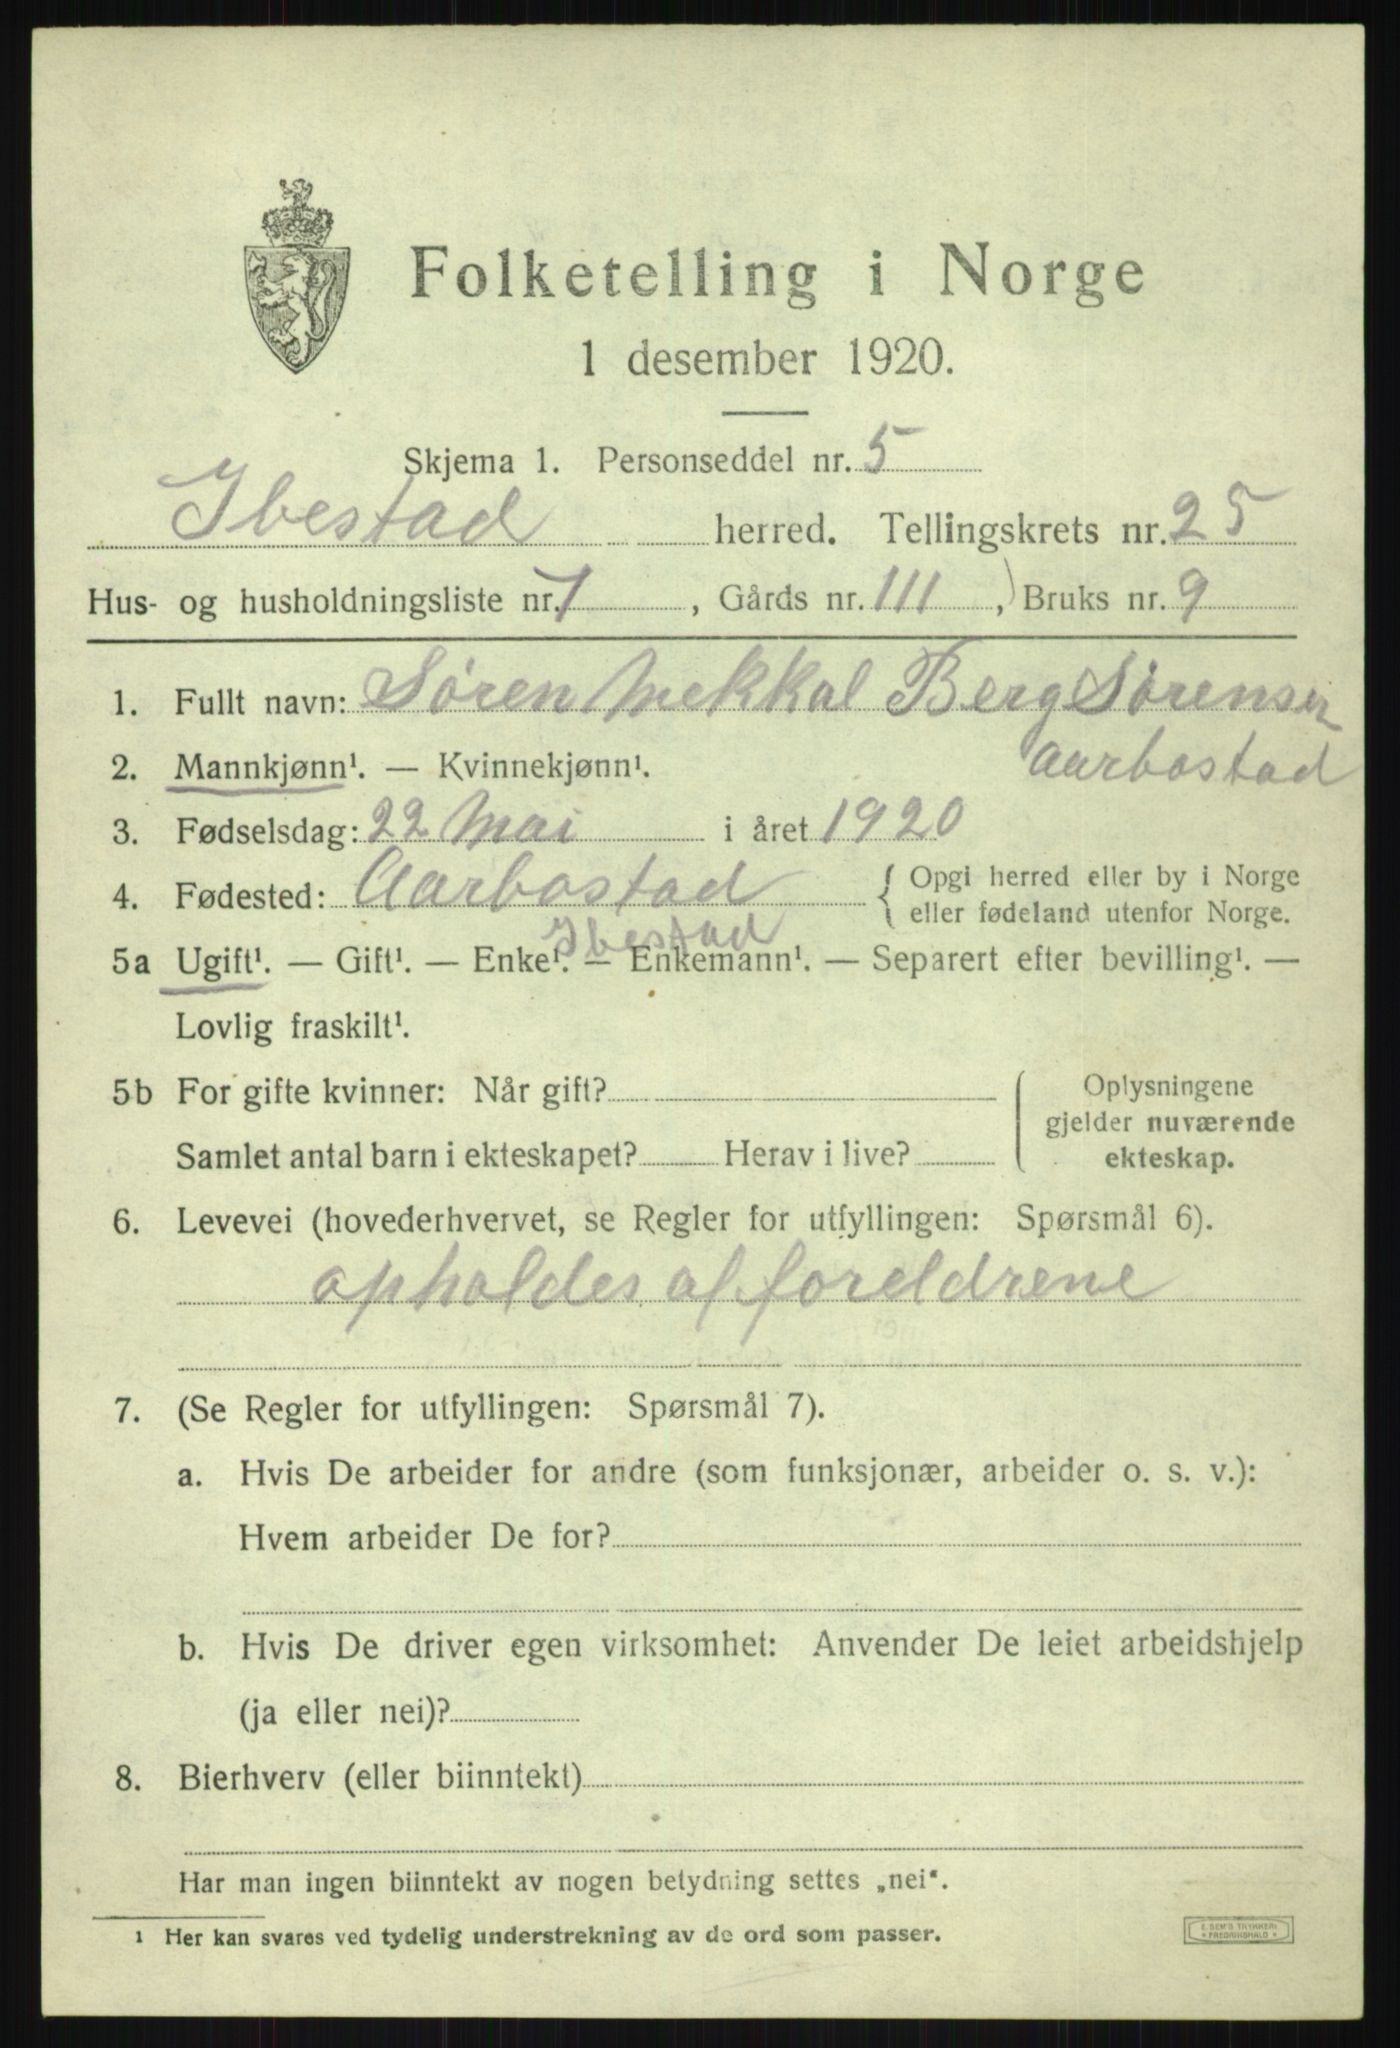 Folketelling i Norge
1 desember 1920.
Skjema 1. Personseddel nr. 5
Ibestad herred. Tellingskrets nr. 25
Hus- og husholdningsliste nr. 1, Gårds nr. 111, Bruks nr. 9
1. Fullt navn: Søren Mekkal Berg Sørensen
Aarbostad
2. Mannkjønn¹. — Kvinnekjønn¹.
3. Fødselsdag: 22 Mai i året 1920
4. Fødested: Aarbostad { Opgi herred eller by i Norge
eller fødeland utenfor Norge.
Ibestad
5a Ugift¹. — Gift¹. — Enke¹. — Enkemann¹. — Separert efter bevilling¹. —
Lovlig fraskilt¹.
5b For gifte kvinner: Når gift? ( Oplysningene
gjelder nuværende
Samlet antal barn i ekteskapet? Herav i live? ekteskap.
6. Levevei (hovederhvervet, se Regler for utfyllingen: Spørsmål 6).
opholdes af foreldrene
7. (Se Regler for utfyllingen: Spørsmål 7).
a. Hvis De arbeider for andre (som funksjonær, arbeider o. s. v.):
Hvem arbeider De for?
b. Hvis De driver egen virksomhet: Anvender De leiet arbeidshjelp
(ja eller nei)?
8. Bierhverv (eller biinntekt)
Har man ingen biinntekt av nogen betydning settes „nei“.
¹ Her kan svares ved tydelig understrekning av de ord som passer.
E. SEM'S TRYKKERI
* FREDRIKSHALD *